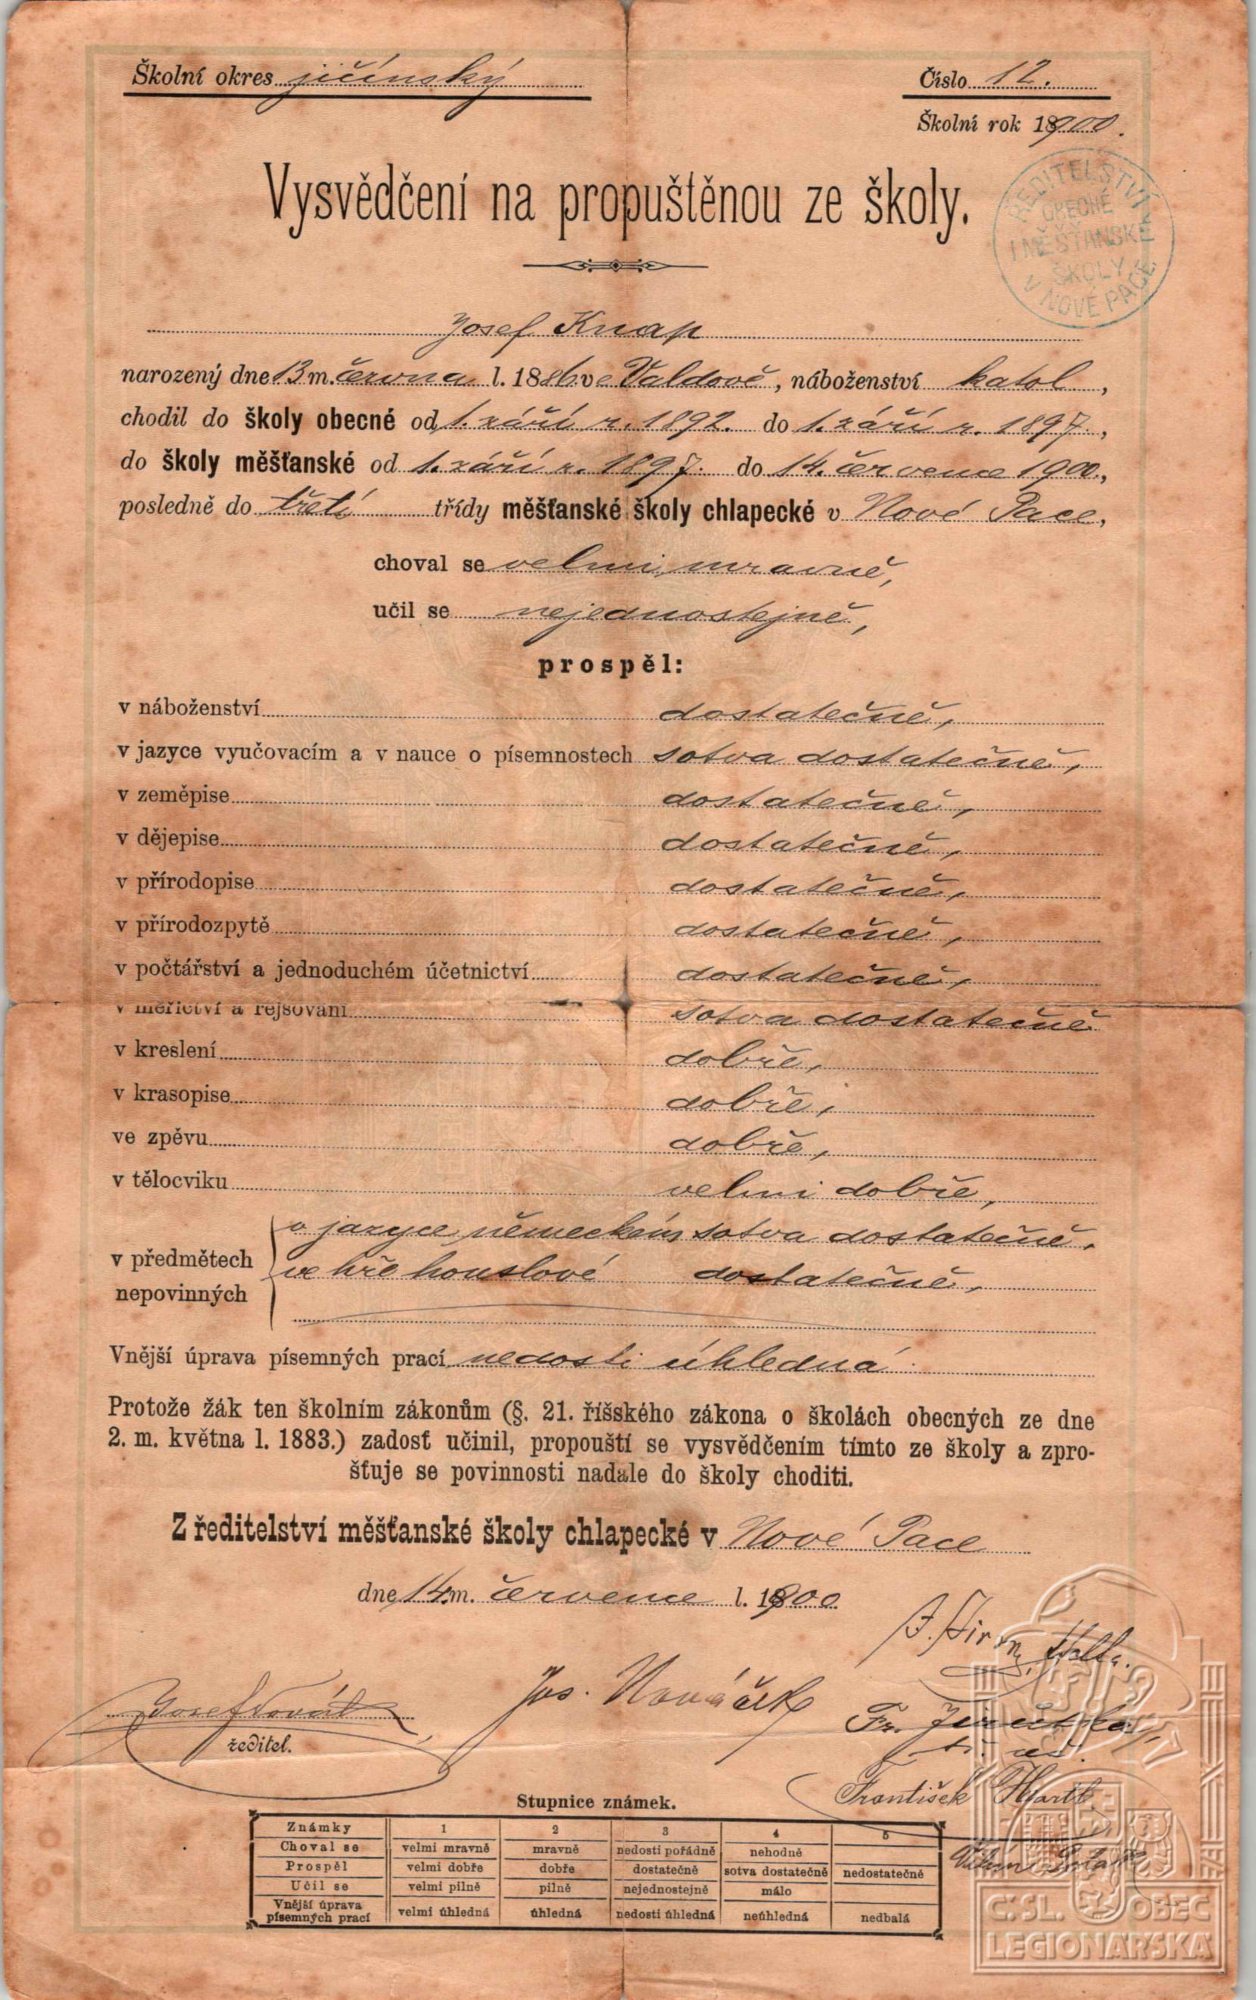 Školní okres jičínský
Číslo 12.
Školní rok 1900.
Vysvědčení na propuštěnou ze školy.
ŘEDITELSTVÍ OBECNÉ I MĚŠŤANSKÉ ŠKOLY V NOVÉ PACE
Josef Knap
narozený dne 13 m. června l. 1886 ve Valdově, náboženství katol,
chodil do školy obecné od 1. září r. 1892. do 1. září r. 1897,
do školy měšťanské od 1. září r. 1897. do 14. července 1900.,
posledně do třetí třídy měšťanské školy chlapecké v Nové Pace,
choval se velmi mravně,
učil se nejednostejně,
prospěl:
v náboženství dostatečně,
v jazyce vyučovacím a v nauce o písemnostech sotva dostatečně,
v zeměpise dostatečně,
v dějepise dostatečně,
v přírodopise dostatečně,
v přírodozpytě dostatečně,
v počtářství a jednoduchém účetnictví dostatečně,
v měřictví a rejsování sotva dostatečně
v kreslení dobře,
v krasopise dobře,
ve zpěvu dobře,
v tělocviku velmi dobře,
v předmětech nepovinných
v jazyce německém sotva dostatečně,
ve hře houslové dostatečně,
Vnější úprava písemných prací nedosti úhledná.
Protože žák ten školním zákonům (§. 21. říšského zákona o školách obecných ze dne
2. m. května l. 1883.) zadosť učinil, propouští se vysvědčením tímto ze školy a zpro-
šťuje se povinnosti nadále do školy choditi.
Z ředitelství měšťanské školy chlapecké v Nové Pace
dne 14. m. července l. 1900
Jos. Nováček
Josef
ředitel.
Fr.
František
Stupnice známek.
Známky 1 2 3 4 5
Choval se velmi mravně mravně nedosti pořádně nehodně
Prospěl velmi dobře dobře dostatečně sotva dostatečně nedostatečně
Učil se velmi pilně pilně nejednostejně málo
Vnější úprava písemných prací velmi úhledná úhledná nedosti úhledná neúhledná nedbalá
Č.SL. OBEC
LEGIONÁŘSKÁ